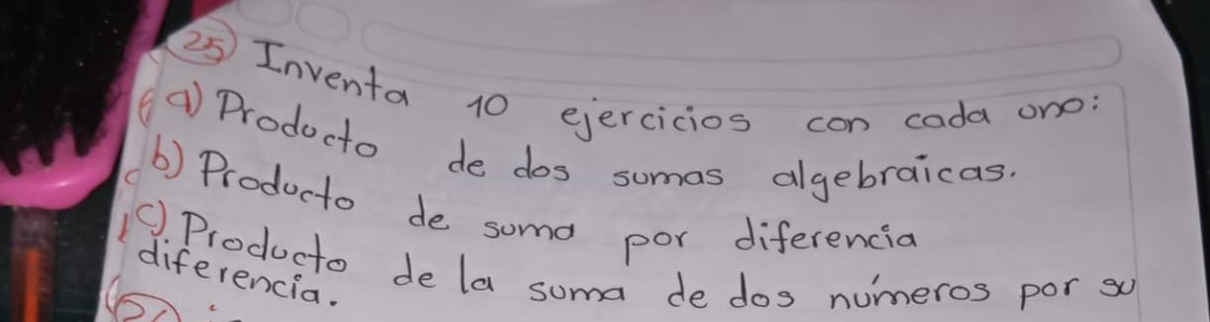 25) Inventa 10 ejercicios con cada uno:
a) Producto de dos sumas algebraicas.
b) Producto de suma por diferencia
c) Producto de la suma de dos números por su
diferencia.